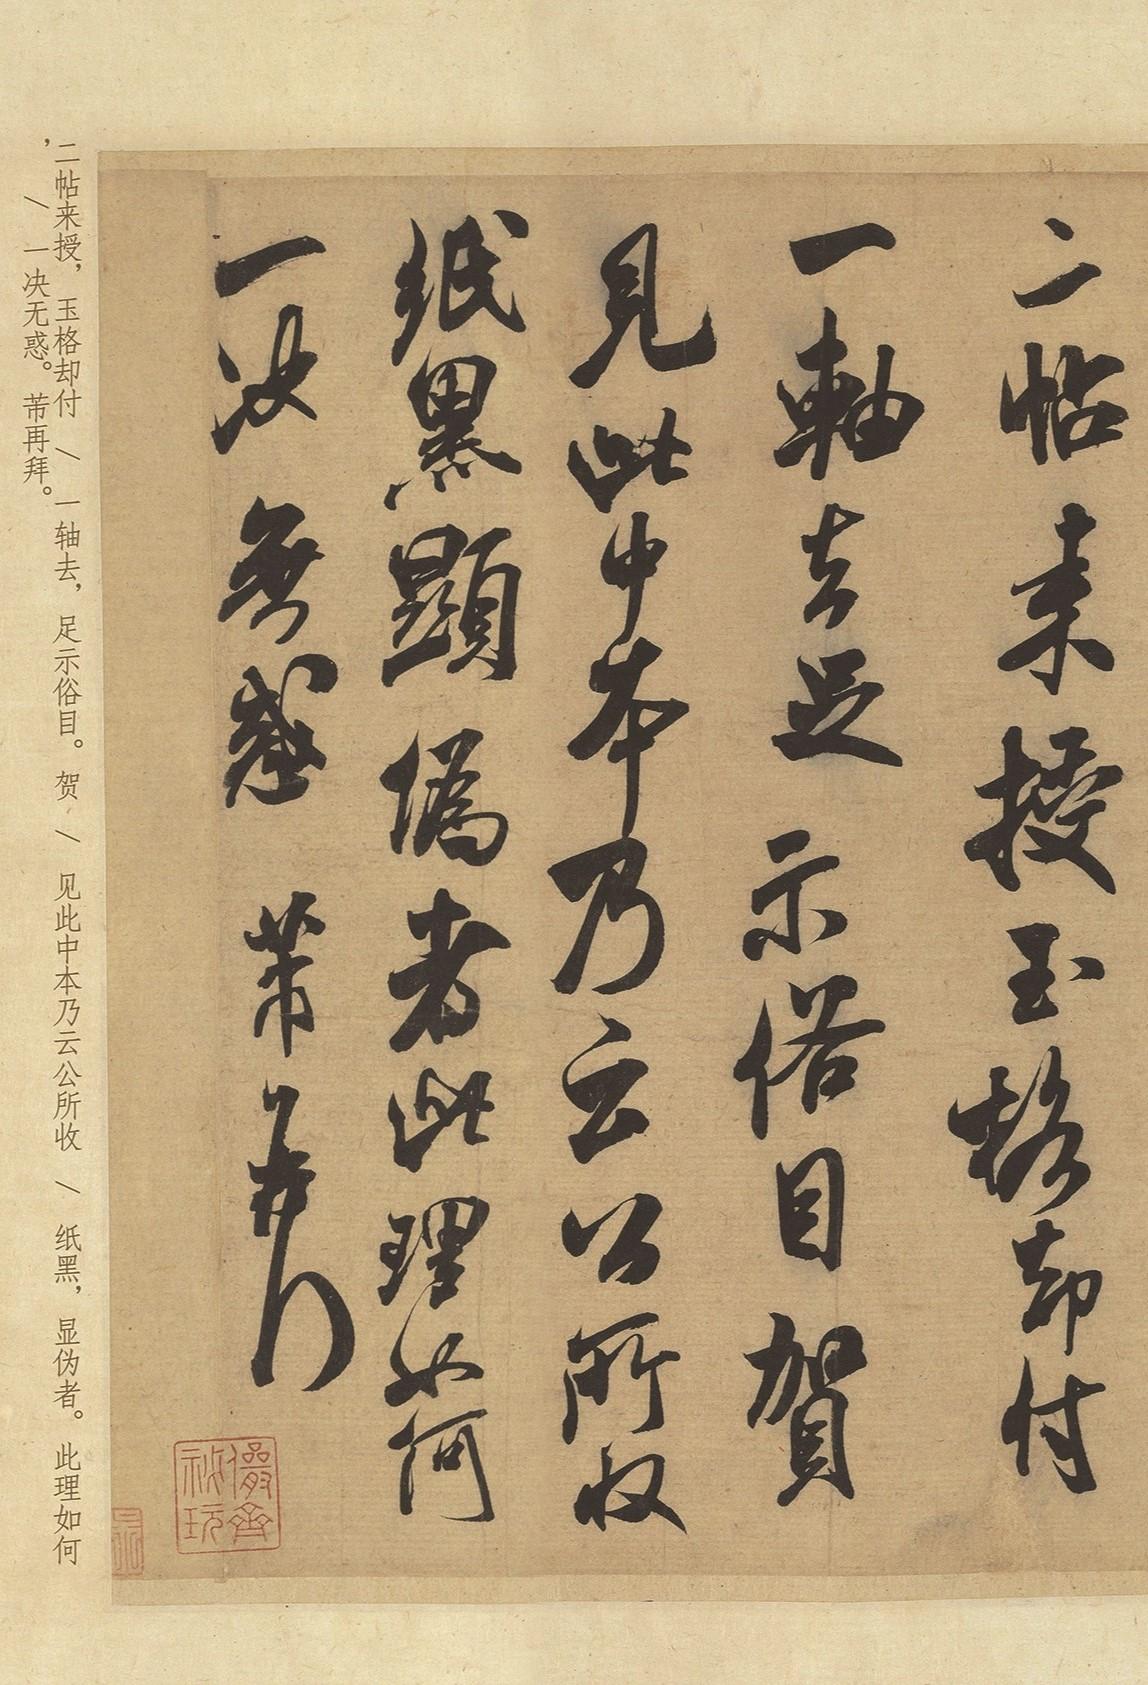 二帖来授玉格却付
一軸去足示俗目賀
見此中本乃云公所收
紙黑顯偽者此理如何
一決無惑芾再拜
儼齋秘玩
二帖来授，玉格却付 \ 一轴去，足示俗目。贺 \ 见此中本乃云公所收 \ 纸黑，显伪者。此理如何
， \ 一决无惑。芾再拜。